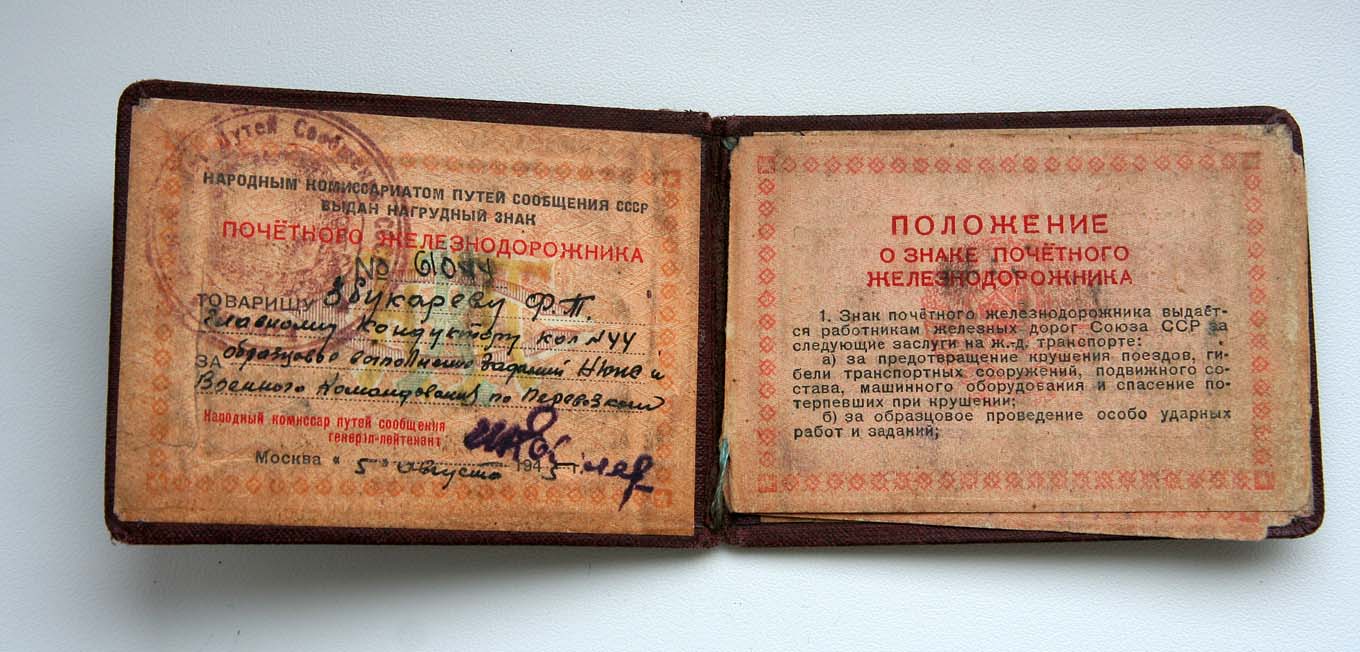 Путей Сообщения
НАРОДНЫМ КОМИССАРИАТОМ ПУТЕЙ СООБЩЕНИЯ СССР
ВЫДАН НАГРУДНЫЙ ЗНАК
ПОЧЁТНОГО ЖЕЛЕЗНОДОРОЖНИКА
№
ТОВАРИЩУ Збукареву Ф.Т.
Главному Кондуктору кол №44
ЗА образцовое выполнение заданий и
Военного Командования по Перевозкам
Народный комиссар путей сообщения
генерал-лейтенант
Москва « 5 » Августа 1945 г.
ПОЛОЖЕНИЕ
О ЗНАКЕ ПОЧЁТНОГО
ЖЕЛЕЗНОДОРОЖНИКА
1. Знак почётного железнодорожника выдаёт-
ся работникам железных дорог Союза ССР за
следующие заслуги на ж.-д. транспорте:
а) за предотвращение крушения поездов, ги-
бели транспортных сооружений, подвижного со-
става, машинного оборудования и спасение по-
терпевших при крушении;
б) за образцовое проведение особо ударных
работ и заданий;